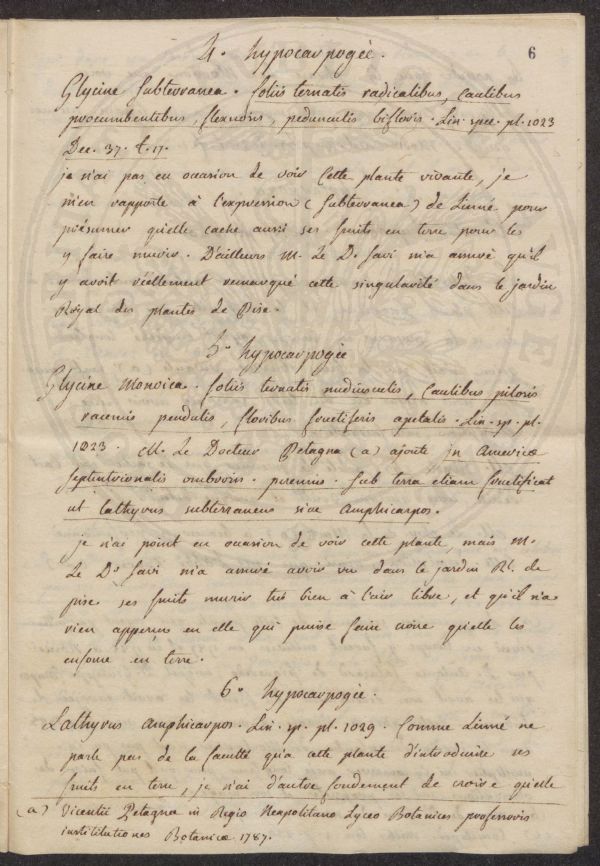 4. hypocarpogée.
6
Glycine Subterranea. foliis ternatis radicalibus, caulibus
procumbentibus, flexuosis, pedunculis bifloris. Lin. spec. pl. 1023
Dec. 37. t. 17.
je n'ai pas eu occasion de voir Cette plante vivante, je
m'en rapporte à l'expression (Subterranea) de Linné pour
présumer qu'elle cache aussi ses fruits en terre pour les
y faire murir. D'ailleurs M. Le D. Savi m'a assuré qu'il
y avoit réellement remarqué cette singularité dans le jardin
Royal des plantes de Pise.
5.e hypocarpogée
Glycine Monoica. foliis ternatis nudiusculis, Caulibus pilosis
racemis pendulis, floribus fructiferis apetalis. Lin. sp. pl.
1023. M. Le Docteur Petagna (a) ajoute in Americæ
septentrionalis umbrosis. perennis. Sub terra etiam fructificat
ut Lathyrus subterraneus sive Amphicarpos.
je n'ai point eu occasion de voir cette plante, mais M.
Le Dr Savi m'a assuré avoir vu dans le jardin Rl. de
pise ses fruits muris très bien à l'air libre, et qu'il n'a
rien apperçus en elle qui puisse faire croire qu'elle les
enfonce en terre.
6.e hypocarpogée.
Lathyrus Amphicarpos. Lin. sp. pl. 1029. Comme Linné ne
parle pas de la faculté qu'a cette plante d'introduire ses
fruits en terre, je n'ai d'autre fondement de croire qu'elle
(a) Vicentii Petagna in Regio Neapolitano Lyceo Botanices professoris
institutiones Botanicæ 1787.